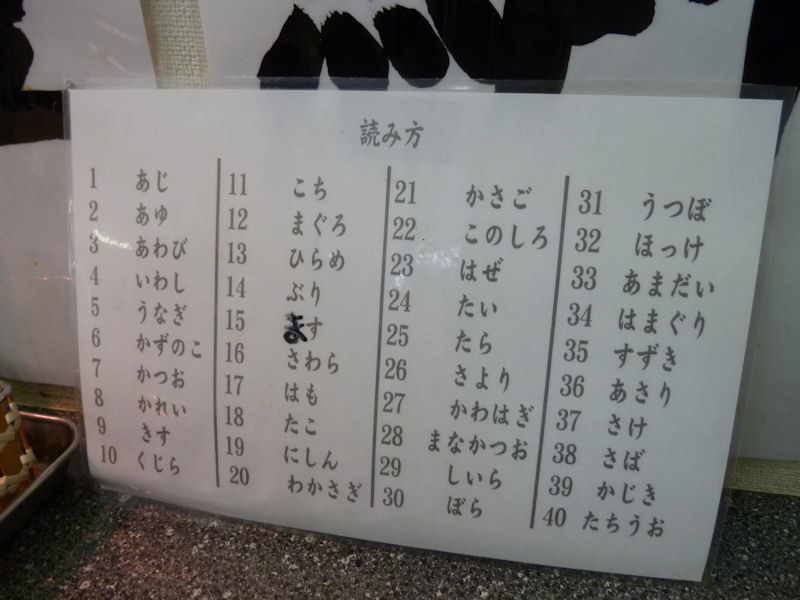 読み方
1 あじ
2 あゆ
3 あわび
4 いわし
5 うなぎ
6 かずのこ
7 かつお
8 かれい
9 きす
10 くじら
11 こち
12 まぐろ
13 ひらめ
14 ぶり
15 ます
16 さわら
17 はも
18 たこ
19 にしん
20 わかさぎ
21 かさご
22 このしろ
23 はぜ
24 たい
25 たら
26 さより
27 かわはぎ
28 まなかつお
29 しいら
30 ぼら
31 うつぼ
32 ほっけ
33 あまだい
34 はまぐり
35 すずき
36 あさり
37 さけ
38 さば
39 かじき
40 たちうお